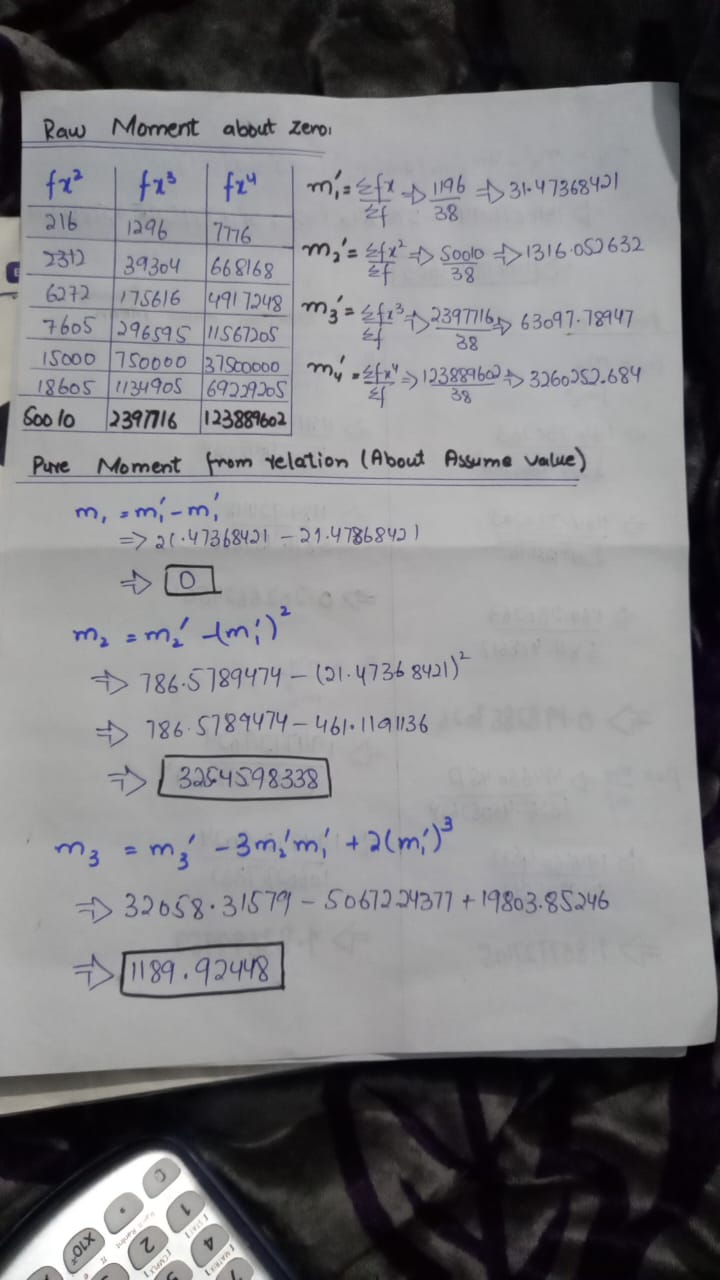 Raw Moment about zero:
fx² fx³ fx⁴
216 1296 7776
2312 39304 668168
6272 175616 4917248
7605 296595 11567205
15000 750000 37500000
18605 1134905 69229205
50010 2397716 123889602
m₁' = Σfx/Σf ⇒ 1196/38 ⇒ 31.47368421
m₂' = Σfx²/Σf ⇒ 50010/38 ⇒ 1316.052632
m₃' = Σfx³/Σf ⇒ 2397716/38 ⇒ 63097.78947
m₄' = Σfx⁴/Σf ⇒ 123889602/38 ⇒ 3260252.684
Pure Moment from relation (About Assume value)
m₁ = m₁' - m₁'
⇒ 21.47368421 - 21.47868421
⇒ 0
m₂ = m₂' - (m₁')²
⇒ 786.5789474 - (21.47368421)²
⇒ 786.5789474 - 461.1191136
⇒ 3254598338
m₃ = m₃' - 3m₂'m₁' + 2(m₁')³
⇒ 32058.31579 - 5067224377 + 19803.85246
⇒ 1189.92448
C
1
2
4
×10ˣ
[STAT]
[CMPLX]
[MATRIX]